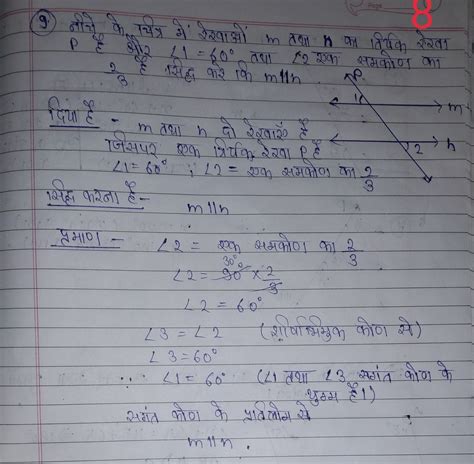 Page
8
9) नीचे के चित्र में रेखाओं m तथा n का तिर्यक रेखा
P है और ∠1 = 60° तथा ∠2 एक समकोण का
2/3 है सिद्ध करें कि m||n
P
1
m
2
n
दिया है - m तथा n दो रेखाएँ है
जिसपर एक तिर्यक रेखा P है
∠1 = 60° ; ∠2 = एक समकोण का 2/3
सिद्ध करना है -
m||n
प्रमाण - ∠2 = एक समकोण का 2/3
30°
∠2 = 90° × 2/3
∠2 = 60°
∠3 = ∠2 (शीर्षाभिमुख कोण से)
∠3 = 60°
∴ ∠1 = 60° (∠1 तथा ∠3 संगत कोण के
युग्म है।)
संगत कोण के प्रतिलोम से
m||n